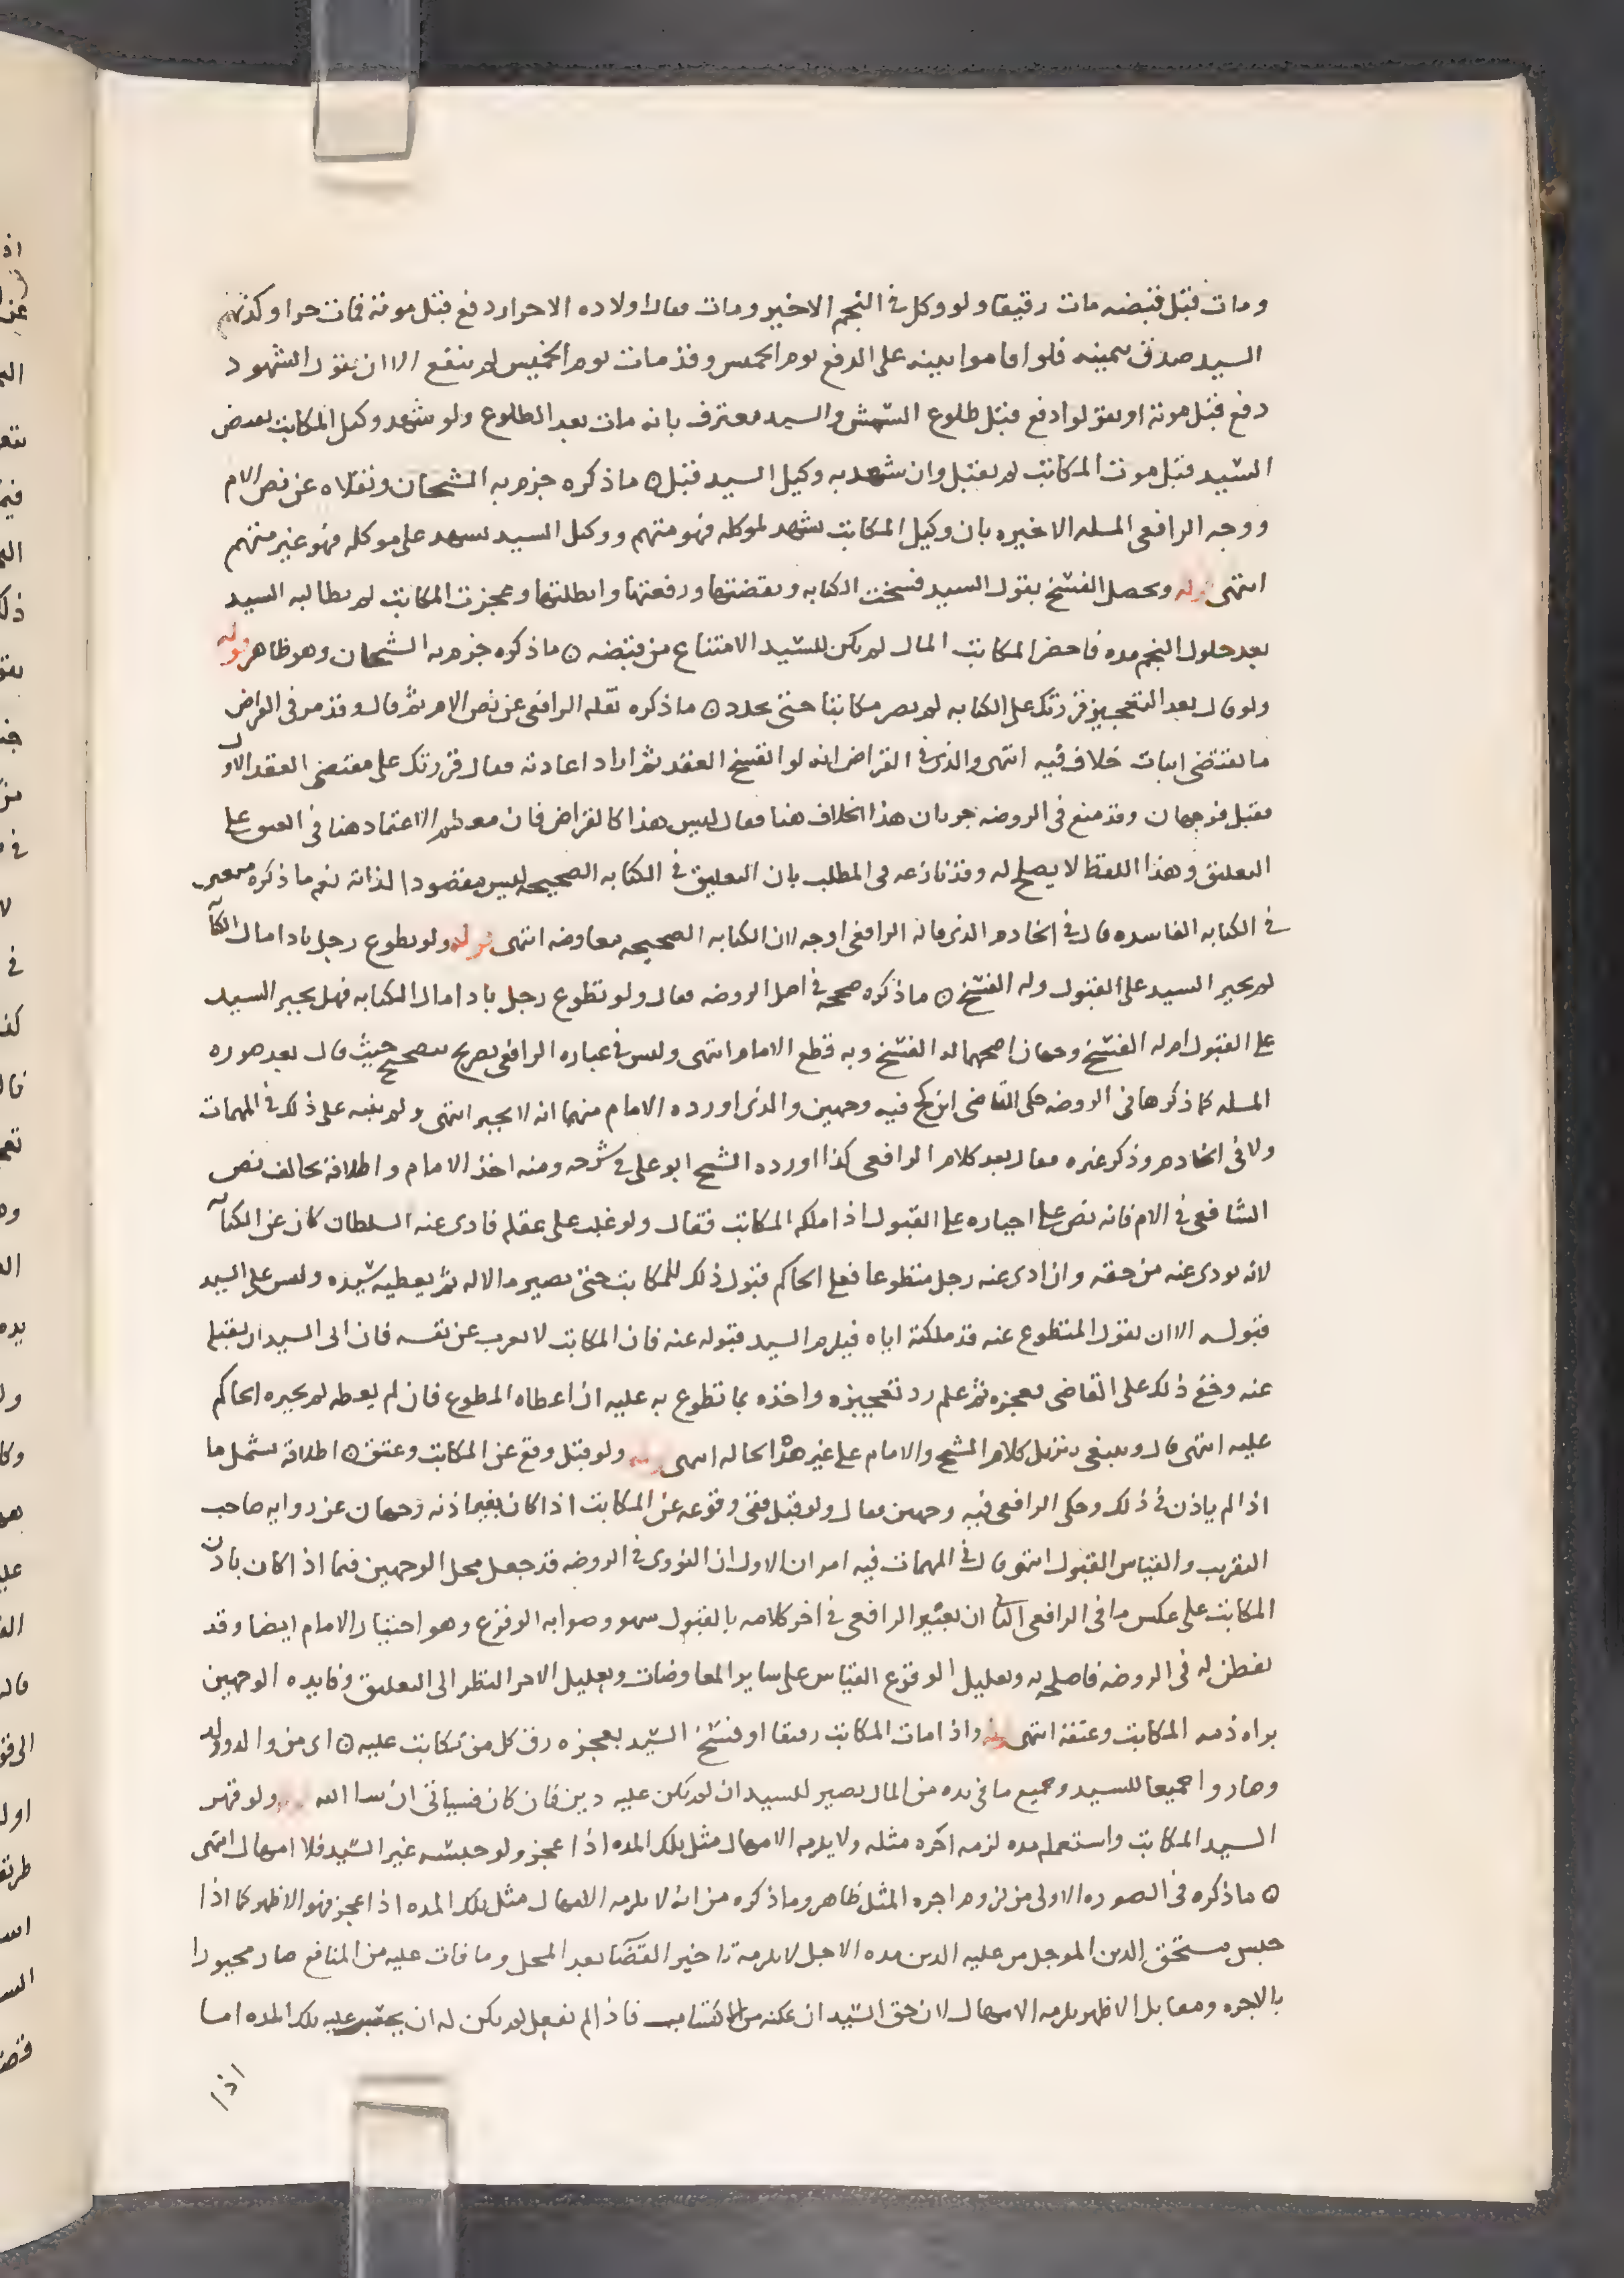 ومات قبل قبضه مات رقيقا ولو وكل في النجم الاخير ومات فقال اولاده الاحرار دفع قبل موته فمات حرا وكذبهم
السيد صدق بيمينه فلو اقاموا بينه على الدفع يوم الخميس وقد مات يوم الخميس لم ينفع الا ان يقول الشهود
دفع قبل موته او يقولوا دفع قبل طلوع الشمش والسيد معترف بانه مات بعد الطلوع ولو شهد وكيل المكاتب بقبض
السيد قبل موت المكاتب لم يقبل وان شهد به وكيل السيد قبل ٥ ما ذكره جزم به الشيخان ونقلاه عن نص الام
ووجه الرافعي المسله الاخيره بان وكيل المكاتب يشهد لموكله فهو متهم ووكيل السيد يشهد على موكله فهو غير متهم
انتهى قوله ويحصل الفسخ بقول السيد فسخت الكتابه ونقضتها ورفعتها وابطلتها وعجزت المكاتب لم يطالبه السيد
بعد حلول النجم مده فاحضر المكاتب المال لم يكن للسيد الامتناع من قبضه ٥ ما ذكره جزم به الشيخان وهو ظاهر قوله
ولو قال بعد التعجيز قررتك على الكتابه لم يصر مكاتبا حتى يجدد ٥ ما ذكره نقله الرافعي عن نص الام ثم قال وقد مر في القراض
ما يقتضي اثبات خلاف فيه انتهى والذي في القراض انه لو انفسخ العقد ثم اراد اعادته فقال قررتك على مقتضى العقد الاول
فقبل فوجهان وقد منع في الروضه جريان هذا الخلاف هنا فقال ليس هذا كالقراض فان معظم الاعتماد هنا في العتق على
التعليق وهذا اللفظ لا يصلح له وقد نازعه في المطلب بان التعليق في الكتابه الصحيحه ليس مقصودا لذاته نعم ما ذكره
في الكتابه الفاسده قال في الخادم الذي قاله الرافعي اوجه لان الكتابه الصحيحه معاوضه انتهى قوله ولو تطوع رجل باداء مال الكتا
لم يجبر السيد على القبول وله الفسخ ٥ ما ذكره صححه في اصل الروضه فقال ولو تطوع رجل باداء مال الكتابه فهل يجبر السيد
على القبول ام له الفسخ وجهان اصحهما له الفسخ وبه قطع الامام انتهى وليس في عباره الرافعي تصريح بتصحيح حيث قال بعد صوره
المسله كما ذكرها في الروضه حكى القاضي ابن كج فيه وجهين والذي اورده الامام منهما انه لا يجبر انتهى ولم ينبه على ذلك في المهمات
ولا في الخادم وذكر غيره فقال بعد كلام الرافعي كذا اورده الشيخ ابو علي في شرحه ومنه اخذ الامام واطلاقه يخالف نص
الشافعي في الام فانه نص على اجباره على القبول اذا ملكه المكاتب فقال ولو غلب على عقله فادى عنه السلطان كان عن الكتا
لانه يودي عنه من حقه وان ادى عنه رجل متطوعا فعلى الحاكم قبول ذلك للمكاتب حتى يصير مالا له ثم يعطيه سيده وليس على السيد
قبوله الا ان يقول المتطوع عنه قد ملكته اياه فيلزم السيد قبوله عنه فان المكاتب لا يعرب عن نفسه فان ابى السيد ان يقبله
عنه وخفي ذلك على القاضي فعجزه ثم علم رد تعجيزه واخذه بما تطوع به عليه ان اعطاه المطوع فان لم يعطه لم يجبره الحاكم
عليه انتهى قال وينبغي تنزيل كلام الشيخ والامام على غير هذه الحاله انتهى قوله ولو قبل وقع عن المكاتب وعتق ٥ اطلاقه يشمل ما
اذا لم ياذن في ذلك وحكى الرافعي فيه وجهين فقال ولو قبل ففي وقوعه عن المكاتب اذا كان بغير اذنه وجهان عن روايه صاحب
التقريب والقياس القبول انتهى قال في المهمات فيه امران الاول ان النووي في الروضه قد جعل محل الوجهين فيما اذا كان باذن
المكاتب على عكس ما في الرافعي الثاني ان تعبير الرافعي في اخر كلامه بالقبول سهو وصوابه الوقوع وهو اختيار الامام ايضا وقد
تفطن له في الروضه فاصلحه وتعليل الوقوع القياس على ساير المعاوضات وتعليل الاخر النظر الى التعليق وفايده الوجهين
براه ذمه المكاتب وعتقه انتهى قوله واذا مات المكاتب رقيقا او فسخ السيد بعجزه رق كل من تكاتب عليه ٥ اي من والد وولد
وصاروا جميعا للسيد وجميع ما في يده من المال يصير للسيد ان لم يكن عليه دين فان كان فسياتي ان شا الله قوله ولو قهر
السيد المكاتب واستعمله مده لزمه اجره مثله ولا يلزمه الامهال مثل تلك المده اذا عجز ولو حبسه غير السيد فلا امهال انتهى
٥ ما ذكره في الصوره الاولى من لزوم اجره المثل ظاهر وما ذكره من انه لا يلزمه الامهال مثل تلك المده اذا عجز فهو الاظهر كما اذا
حبس مستحق الدين الموجل من عليه الدين مده الاجل لا يلزمه تاخير القضا بعد المحل وما فات عليه من المنافع صار مجبورا
بالاجره ومقابل الاظهر يلزمه الامهال لان حق السيد ان يمكنه من الاكتساب فاذا لم يفعل لم يكن له ان يحتسب عليه تلك المده اما
اذا